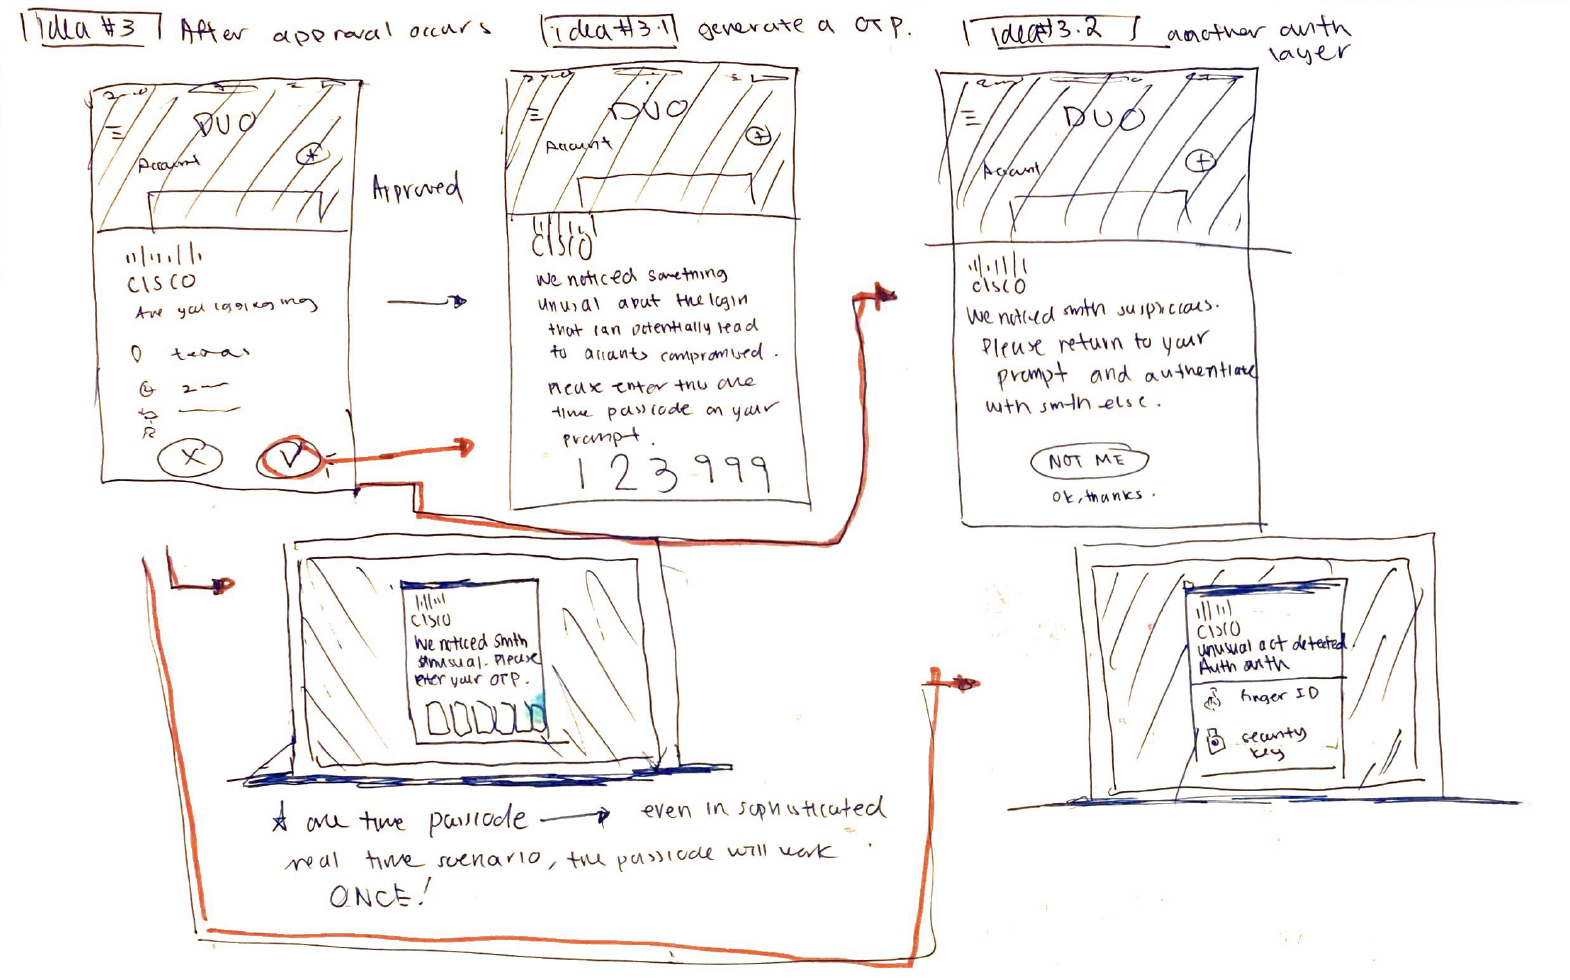 Idea #3
After approval occurs
idea#3.1
generate a OTP.
idea#3.2
another auth
layer
DUO
Account
CISCO
Are you logging in?
texas
2
X
Approved
DUO
Account
CISCO
We noticed something
unusual about the login
that can potentially lead
to accounts compromised.
Please enter this one
time passcode on your
prompt.
123999
DUO
Account
CISCO
We noticed smth suspicious.
Please return to your
prompt and authentiate
with smth else.
NOT ME
ok, thanks.
CISCO
We noticed smth
unusual. Please
enter your OTP.
CISCO
unusual act detected.
Auth with
finger ID
security
key
one time passcode → even in sophisticated
real time scenario, the passcode will work
ONCE!